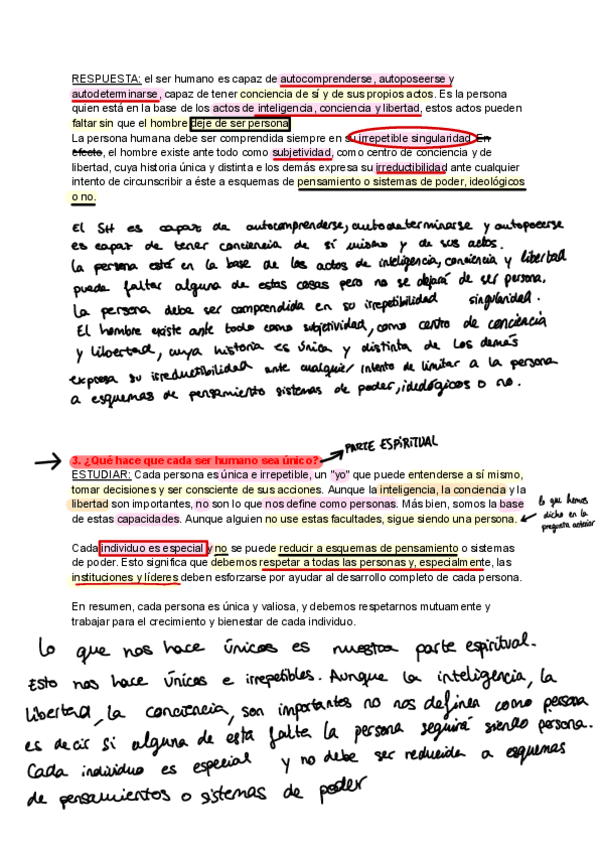 RESPUESTA: el ser humano es capaz de autocomprenderse, autoposeerse y
autodeterminarse, capaz de tener conciencia de sí y de sus propios actos. Es la persona
quien está en la base de los actos de inteligencia, conciencia y libertad, estos actos pueden
faltar sin que el hombre deje de ser persona
La persona humana debe ser comprendida siempre en su irrepetible singularidad. En
efecto, el hombre existe ante todo como subjetividad, como centro de conciencia y de
libertad, cuya historia única y distinta e los demás expresa su irreductibilidad ante cualquier
intento de circunscribir a éste a esquemas de pensamiento o sistemas de poder, ideológicos
o no.
El SH es capaz de autocomprenderse, autodeterminarse y autopoerse
es capaz de tener conciencia de sí mismo y de sus actos.
La persona está en la base de los actos de inteligencia, conciencia y libertad
puede faltar alguna de estas cosas pero no se dejará de ser persona.
La persona debe ser comprendida en su irrepetibilidad singularidad.
El hombre existe ante todo como subjetividad, como centro de conciencia
y libertad, cuya historia es única y distinta de los demás
expresa su irreductibilidad ante cualquier intento de limitar a la persona
a esquemas de pensamiento sistemas de poder, ideológicos o no.
→ 3. ¿Qué hace que cada ser humano sea único? → PARTE ESPIRITUAL
ESTUDIAR: Cada persona es única e irrepetible, un "yo" que puede entenderse a sí mismo,
tomar decisiones y ser consciente de sus acciones. Aunque la inteligencia, la conciencia y la
libertad son importantes, no son lo que nos define como personas. Más bien, somos la base
de estas capacidades. Aunque alguien no use estas facultades, sigue siendo una persona.
lo que hemos
dicho en la
pregunta anterior
Cada individuo es especial y no se puede reducir a esquemas de pensamiento o sistemas
de poder. Esto significa que debemos respetar a todas las personas y, especialmente, las
instituciones y líderes deben esforzarse por ayudar al desarrollo completo de cada persona.
En resumen, cada persona es única y valiosa, y debemos respetarnos mutuamente y
trabajar para el crecimiento y bienestar de cada individuo.
Lo que nos hace únicos es nuestra parte espiritual.
Esto nos hace únicos e irrepetibles. Aunque la inteligencia, la
libertad, la conciencia, son importantes no nos definen como persona
es decir si alguna de esta falta la persona seguirá siendo persona.
Cada individuo es especial y no debe ser reducida a esquemas
de pensamientos o sistemas de poder